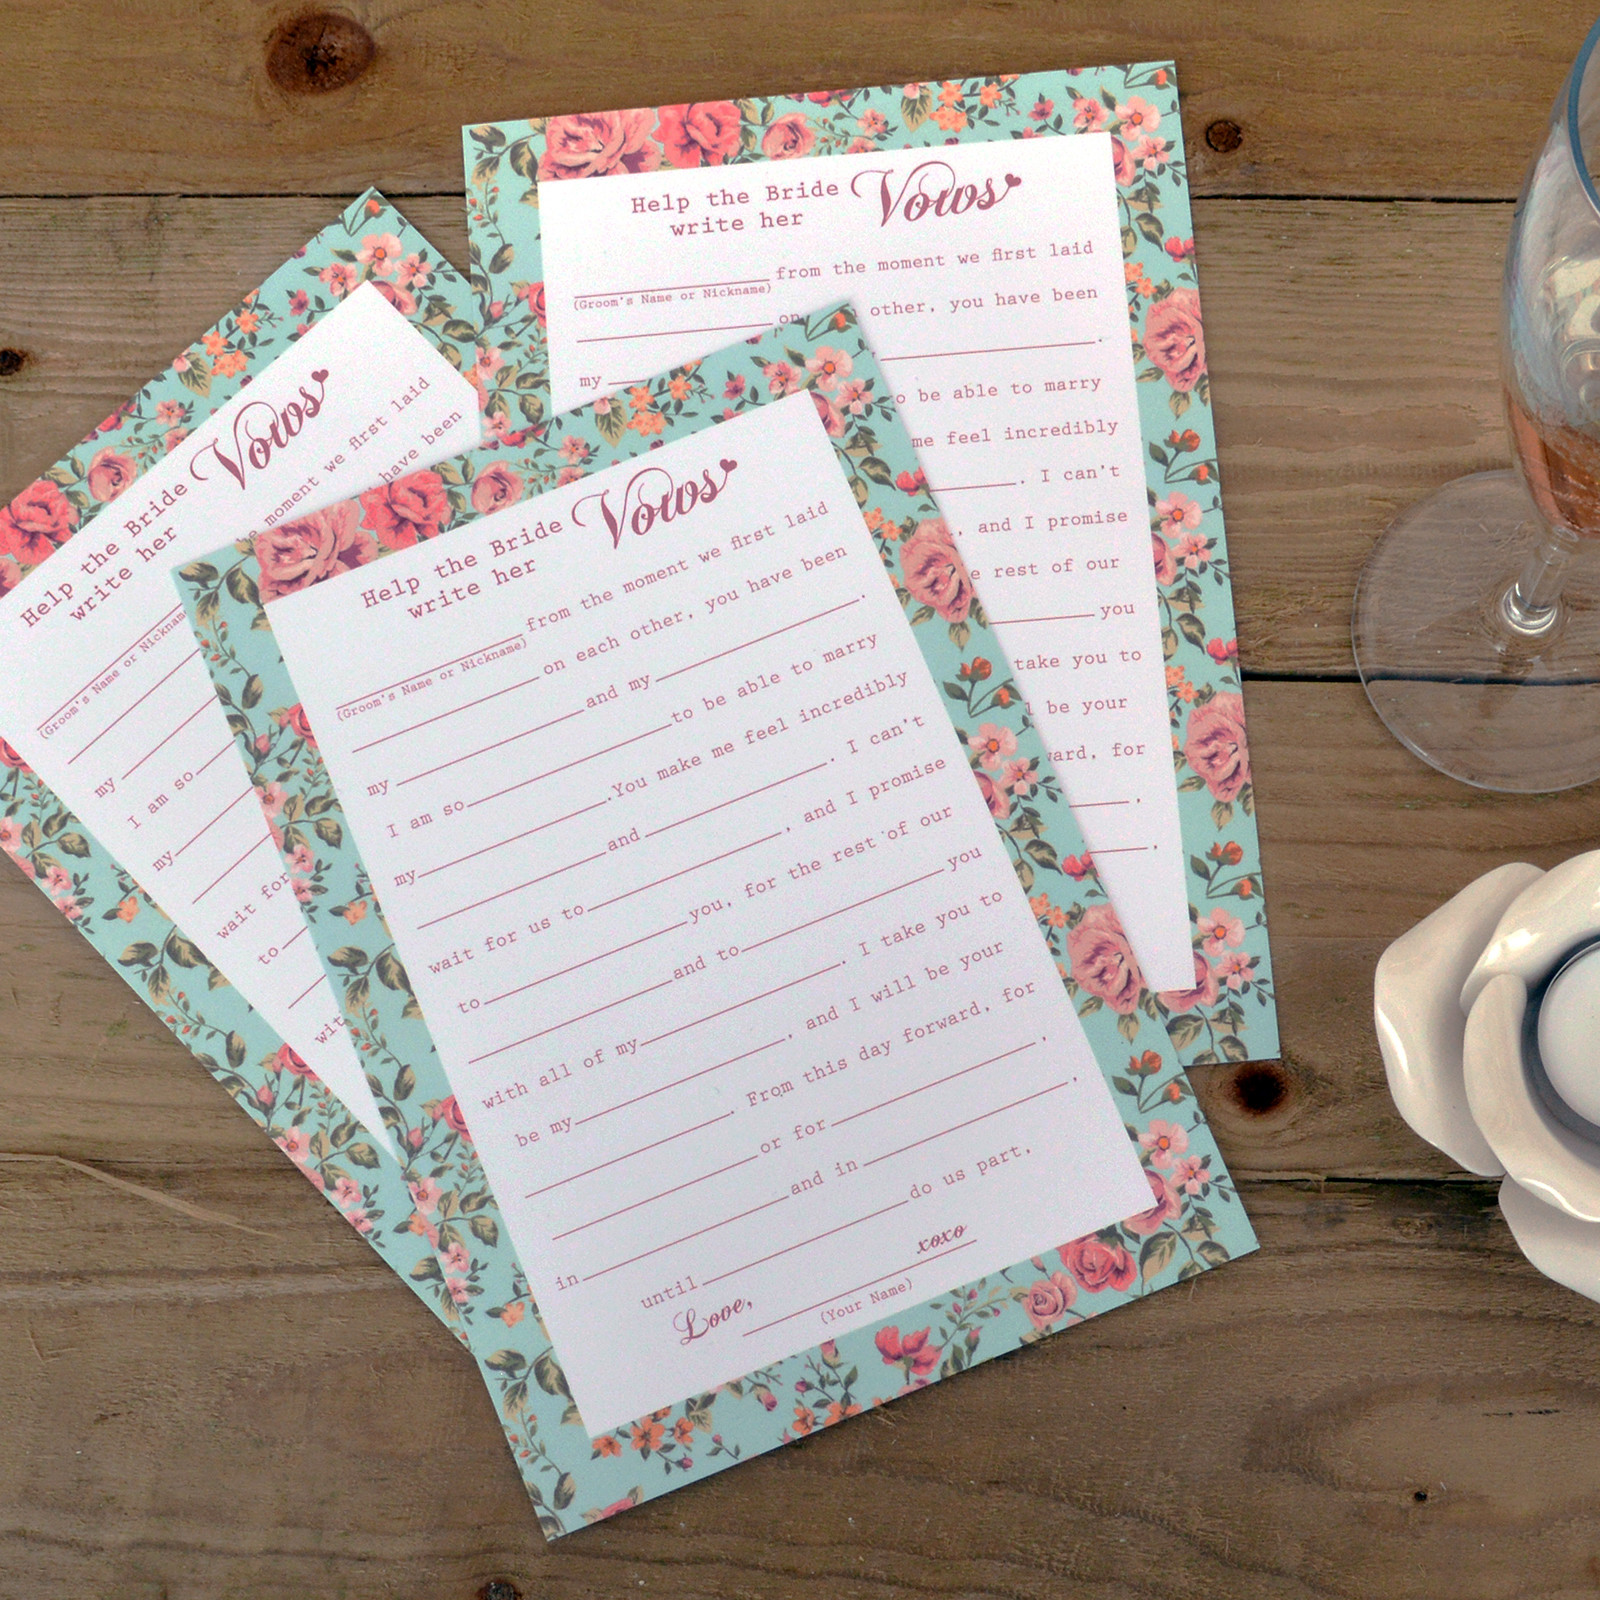 Help the Bride Vows
write her
from the moment we first laid
(Groom's Name or Nickname)
on each other, you have been
my and my .
I am so to be able to marry
my .You make me feel incredibly
and . I can't
wait for us to , and I promise
to you, for the rest of our
and to you
with all of my . I take you to
be my , and I will be your
. From this day forward, for
or for ,
in and in .
until do us part,
xoxo
Love,
(Your Name)
Help the Bride Vows
write her
from the moment we first laid
(Groom's Name or Nickname)
other, you have been
my .
be able to marry
me feel incredibly
. I can't
, and I promise
rest of our
you
take you to
be your
for
,
.
Help the Bride Vows
write her
moment we first laid
(Groom's Name or
have been
my
I am so
my
wait for
to